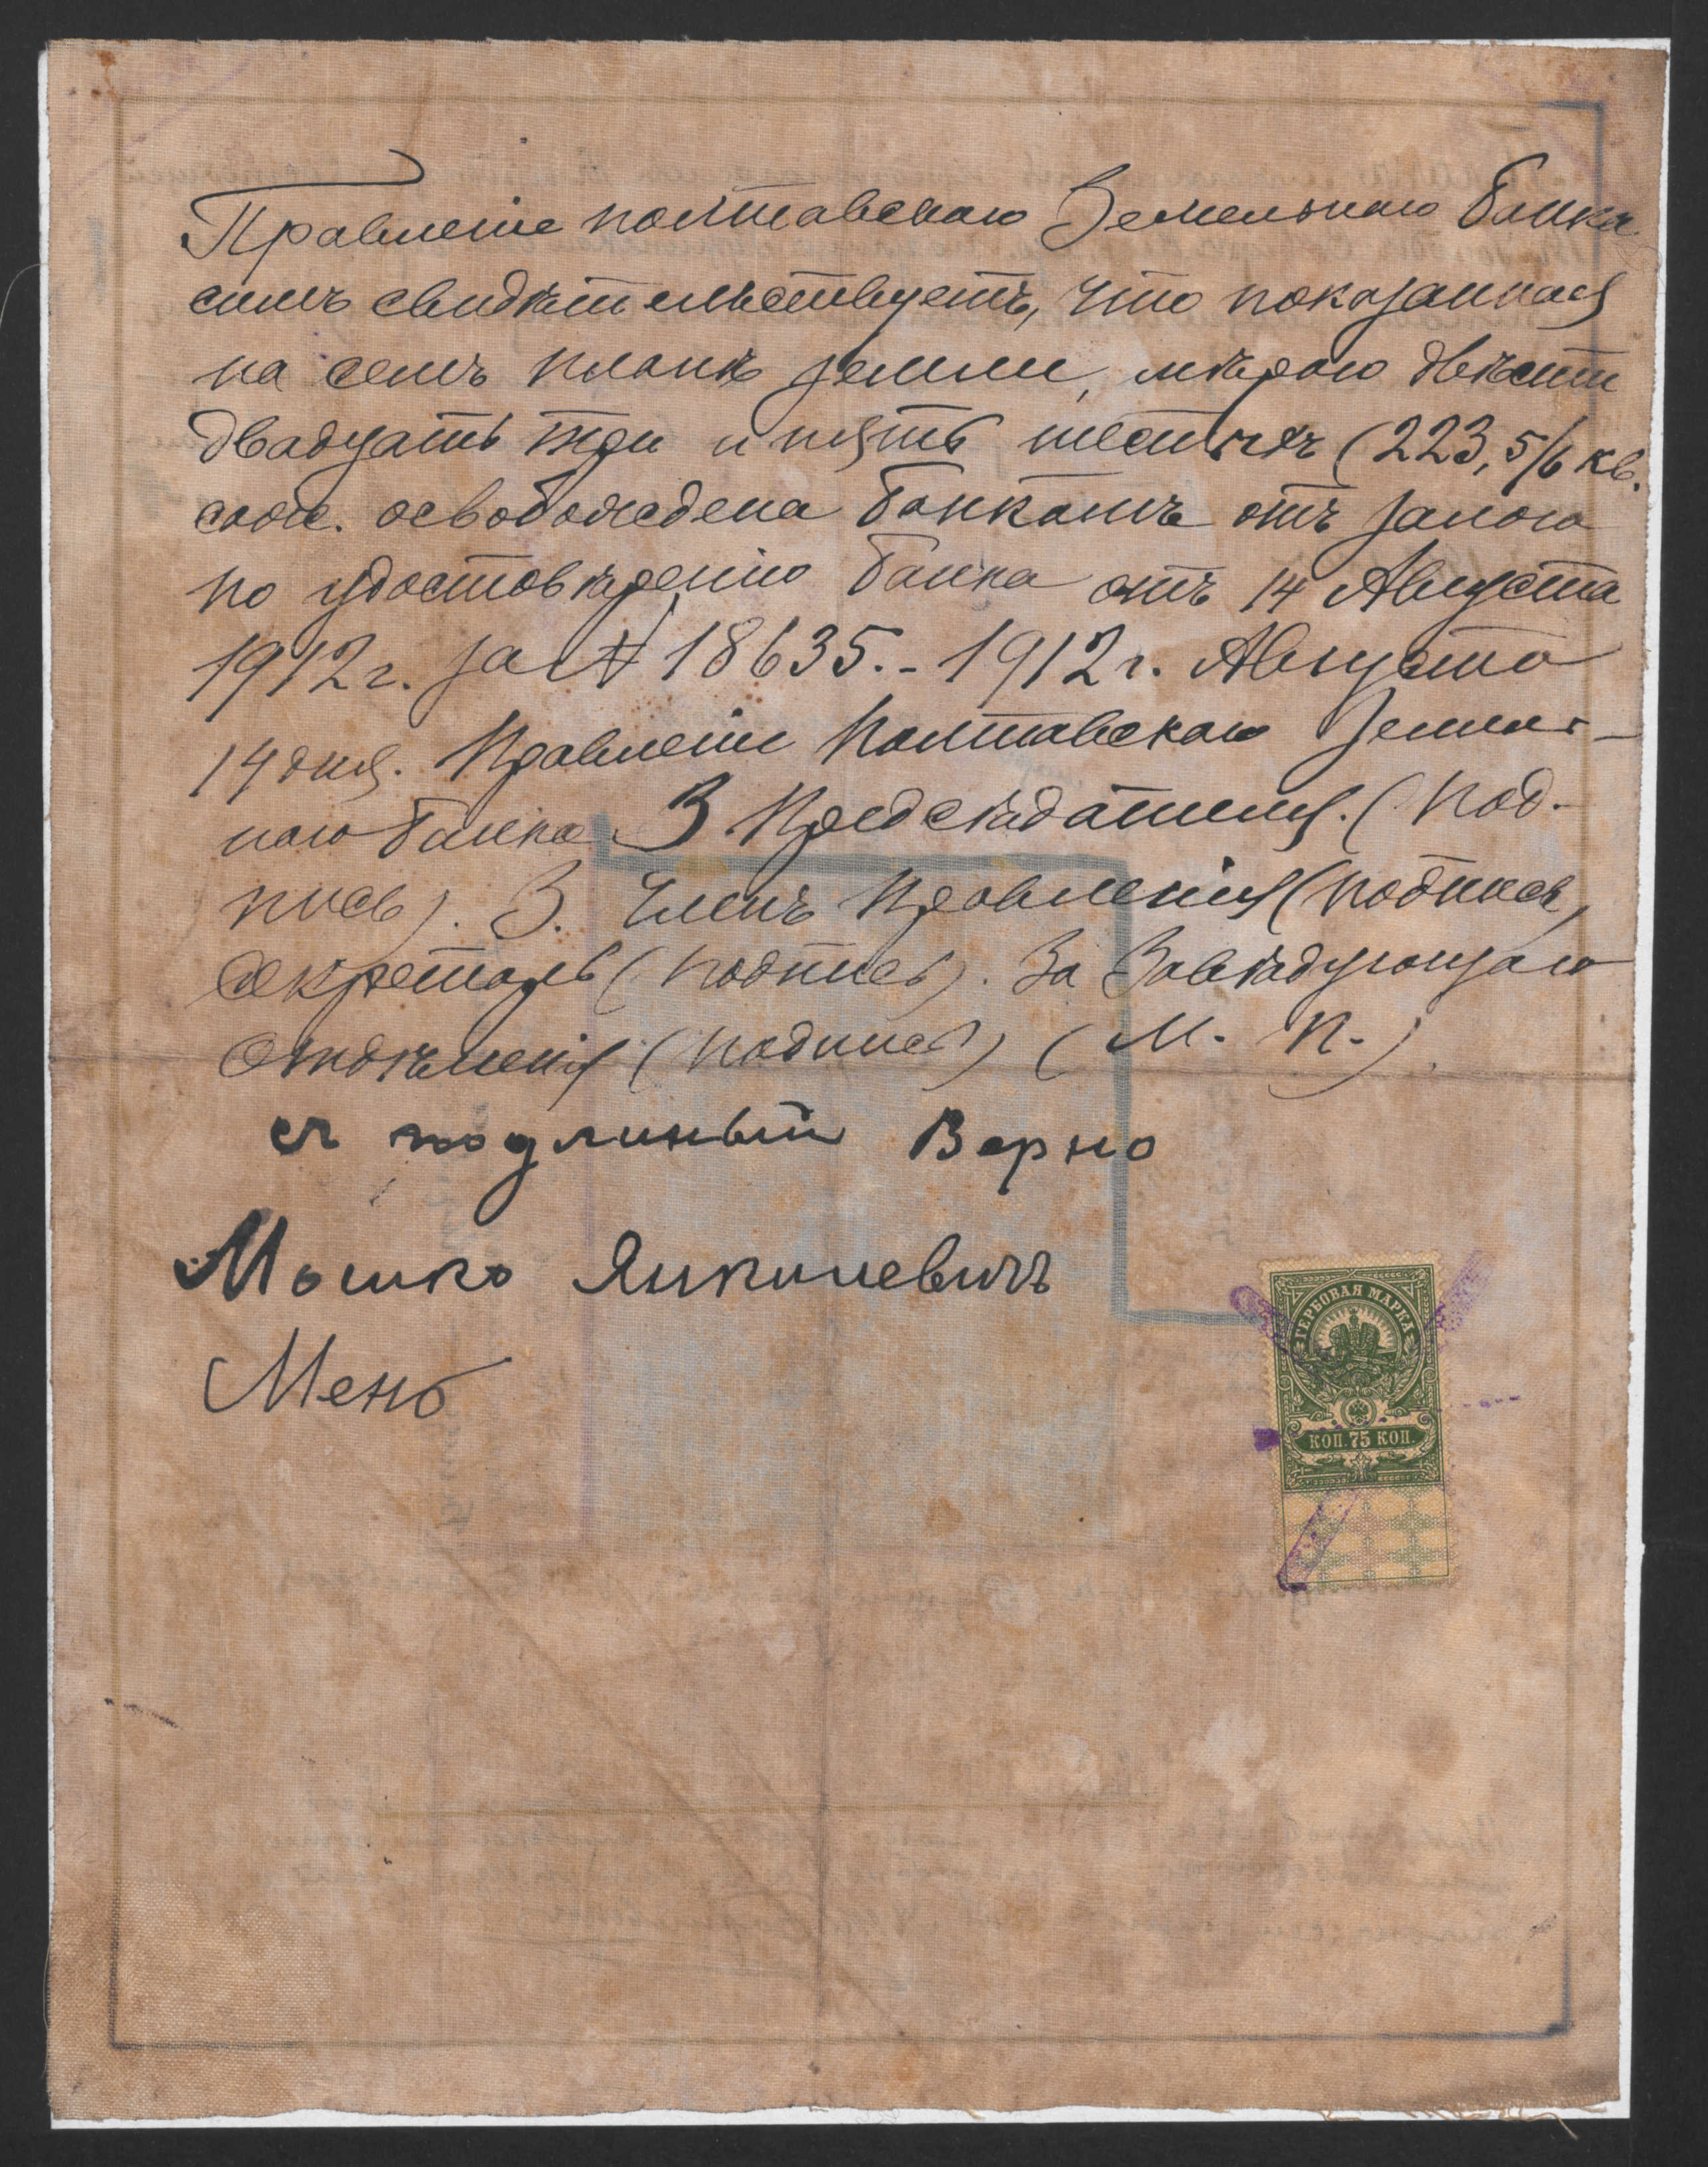 Правленіе Полтавскаго Земельнаго Банка
симъ свидѣтельствуетъ, что показанная
на семъ планѣ земли, мѣрою двѣсти
двадцать три и пять шестыхъ (223,5/6 кв.
саж. освобождена банкомъ отъ залога
по удостовѣренію банка отъ 14 Августа
1912 г. за № 18635. - 1912 г. Августа
14 дня. Правленіе Полтавскаго Земель-
наго Банка З Предсѣдателя. (Под-
пись). З. Членъ Правленія (подпись,
Секретарь (подпись). За Завѣдующаго
Отдѣленія (подпись) (М. П.)
съ подлиный Верно
Мошко Янкилевичъ
Мень
ГЕРБОВАЯ МАРКА
КОП. 75 КОП.